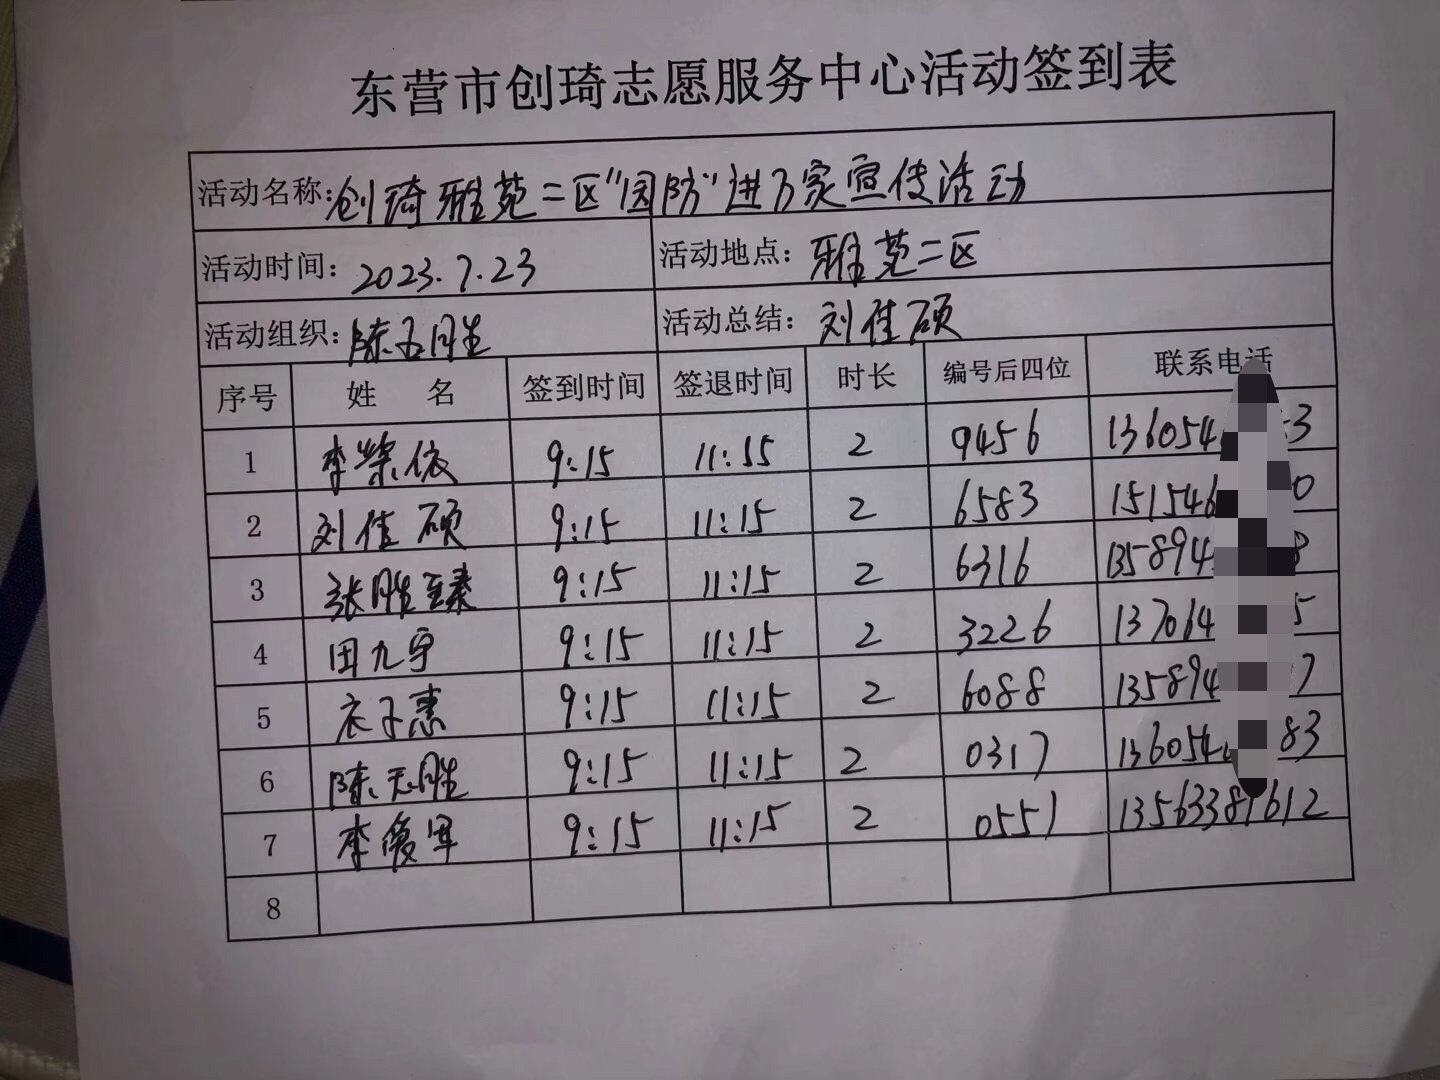 东营市创琦志愿服务中心活动签到表
活动名称:创琦雅苑二区"国防"进万家宣传活动
活动时间: 2023.7.23 活动地点: 雅苑二区
活动组织: 活动总结: 刘佳硕
序号 姓 名 签到时间 签退时间 时长 编号后四位 联系电话
1 李荣依 9:15 11:15 2 9456 136054 3
2 刘佳硕 9:15 11:15 2 6583 151546 0
3 张胜臻 9:15 11:15 2 6316 135894 8
4 田九宇 9:15 11:15 2 3226 137064 5
5 衣子惠 9:15 11:15 2 6088 135894 7
6 9:15 11:15 2 0317 136054 83
7 李俊军 9:15 11:15 2 0551 13563389612
8